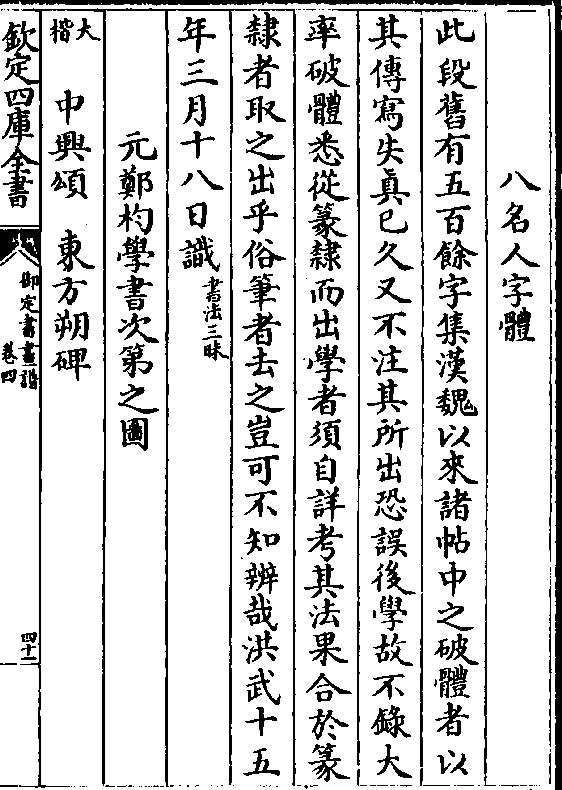 八名人字體
此段舊有五百餘字集漢魏以來諸帖中之破體者以
其傳寫失真已久又不注其所出恐誤後學故不錄大
率破體悉從篆隸而出學者須自詳考其法果合於篆
隸者取之出乎俗筆者去之豈可不知辨哉洪武十五
年三月十八日識書法三昧
元鄭杓學書次第之圖
大楷 中興頌 東方朔碑
欽定四庫全書 御定書畫譜 卷四 四十一